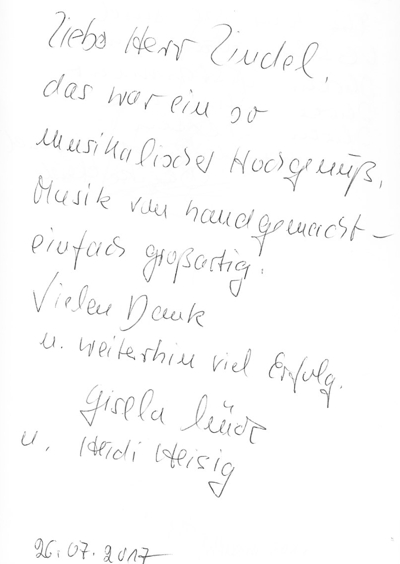 Liebe Herr Zindel,
das war ein so
musikalischer Hochgenuß.
Musik von handgemacht –
einfach großartig.
Vielen Dank
u. weiterhin viel Erfolg.
Gisela
u. Heidi Heisig
26.07.2017